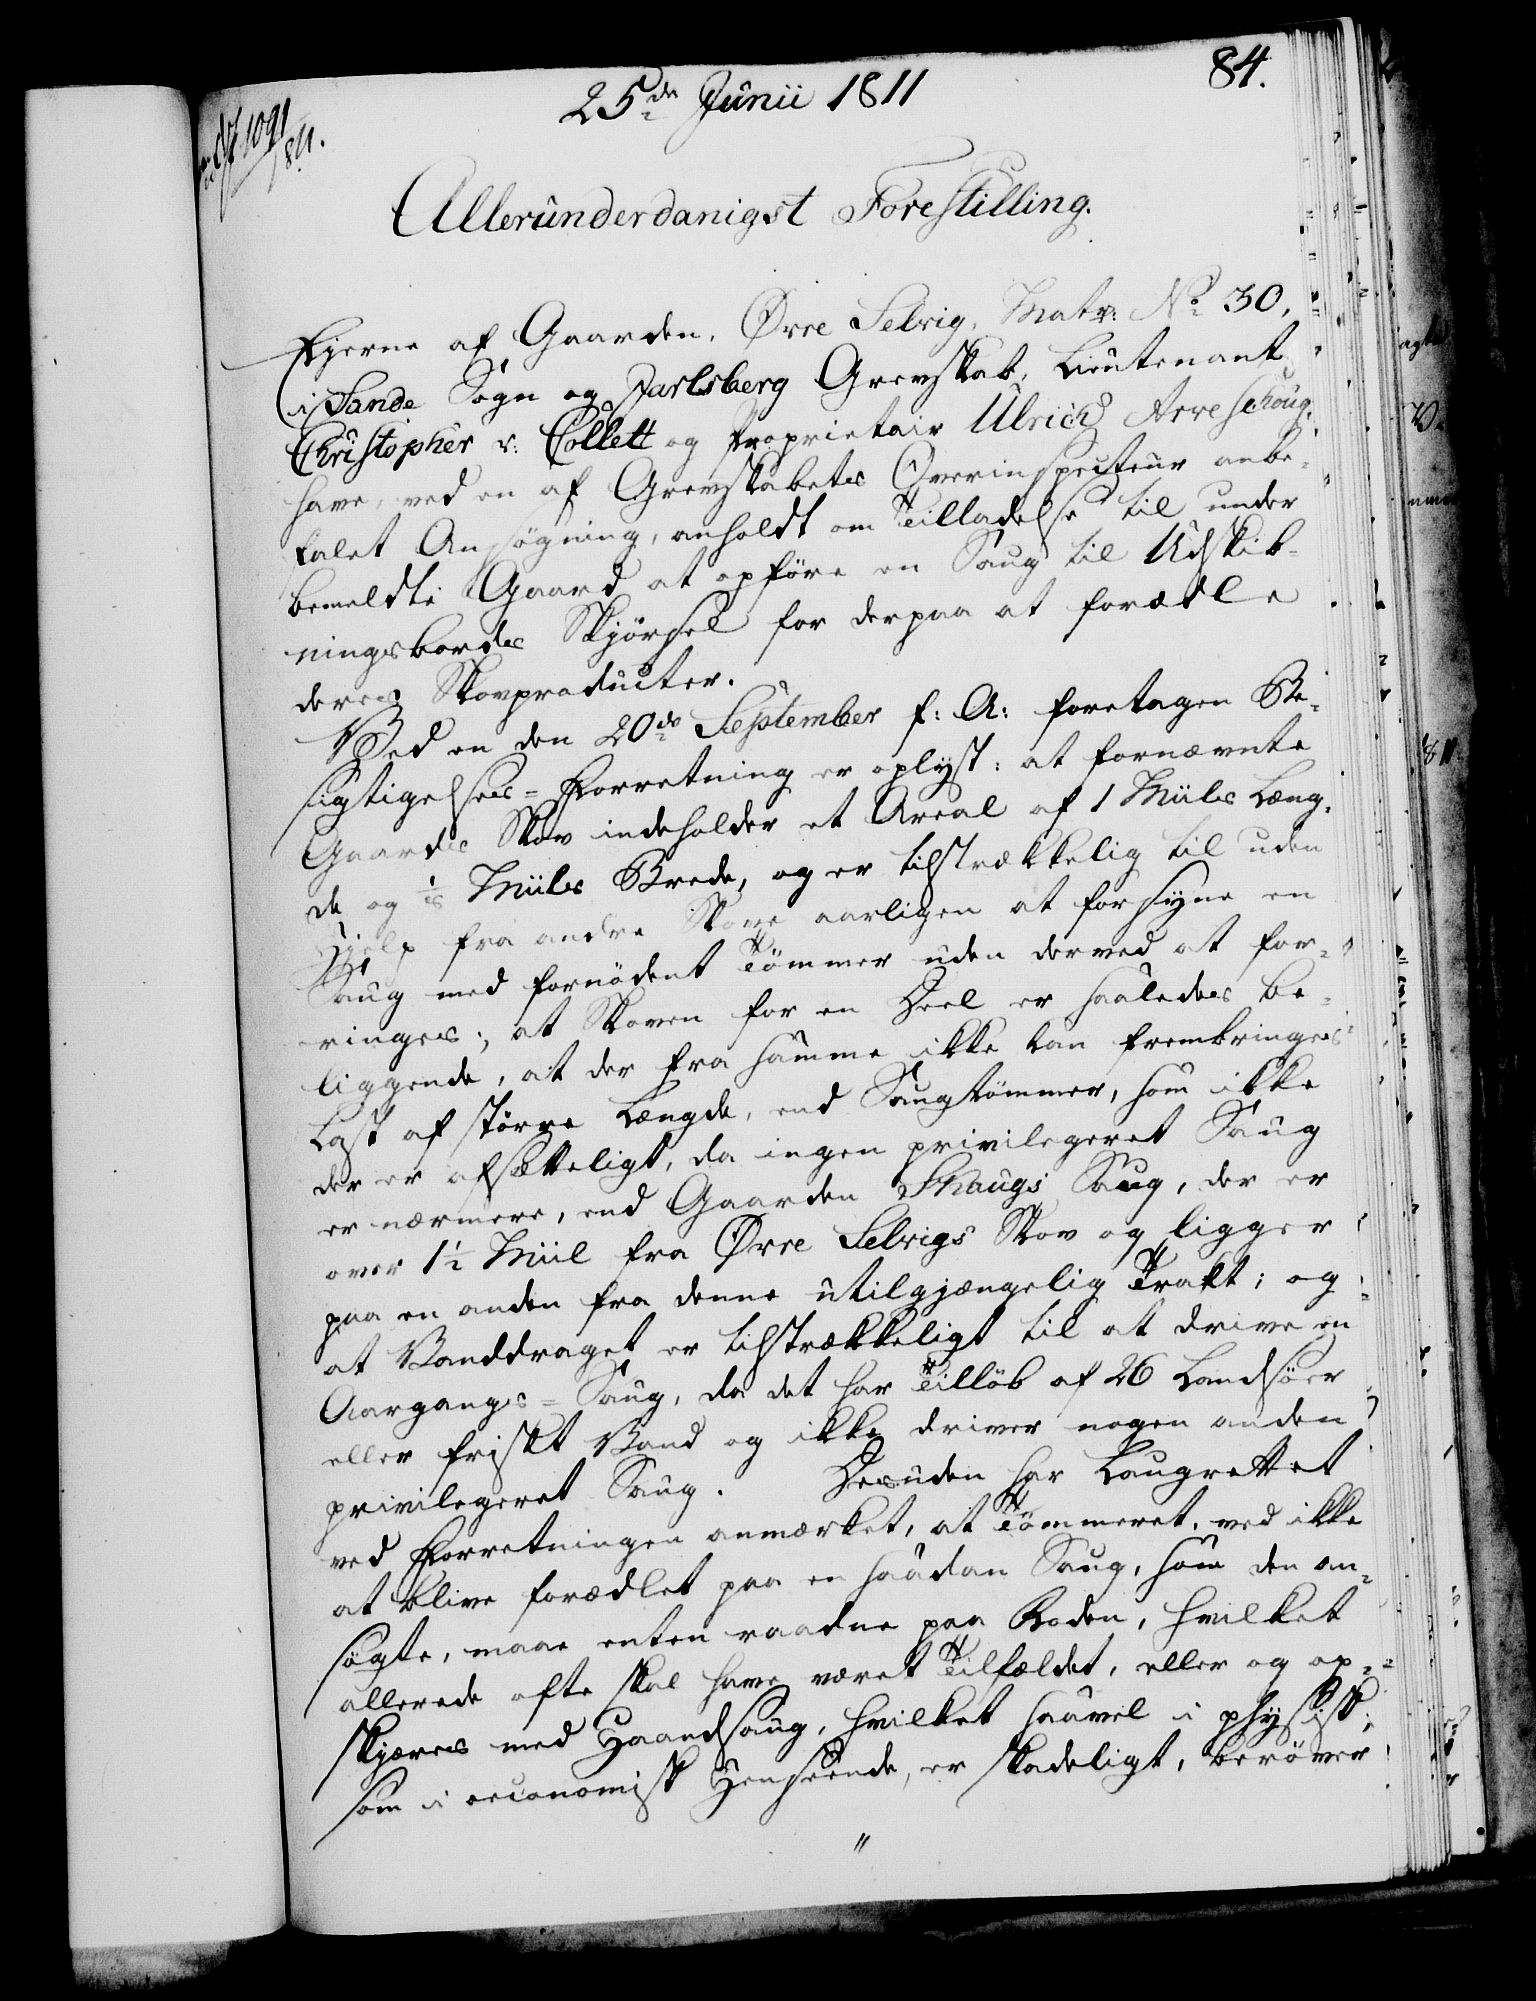 84.
25de Junii 1811
1091
1811.
Allerunderdanigst Forestilling.
Ejerne af Gaarden, Øvre Selvig, Matr: No 30,
i Sande Sogn og Jarlsberg Grevskab, Lieutenant
Christopher v: Collett og Proprietair Ulrich Arreschoug,
have, ved en af Grevskabets Overinspecteur anbe-
falet Ansøgning, anholdt om Tilladelse til under
bemeldte Gaard at opføre en Saug til Udskib-
ningsbordes Skjørsel for derpaa at forædle
deres Skovproducter.
Ved en den 20de September f: A: foretagen Be-
sigtigelses-Forretning er oplyst: at fornævnte
Gaards Skov indeholder et Areal af 1 Miils Læng-
de og Miils Brede, og er tilstrækkelig til uden
Hjelp fra andre Skove aarligen at forsyne en
Saug med fornødent Tömmer uden derved at for-
ringes; at Skoven for en Deel er saaledes be-
liggende, at der fra samme ikke kan frembringes
Last af större Længde, end Saugtömmer, som ikke
der er afsætteligt, da ingen privilegeret Saug
er nærmere, end Gaarden Skaugs Saug, der er
over 1½ Miil fra Øvre Selvigs Skov og ligger
paa en anden fra denne utilgjængelig Trakt; og
at Vanddraget er tilstrækkeligt til at drive en
Aargangs-Saug, da det har Tilløb af 26 Landsöer
eller friskt Vand og ikke driver nogen anden
privilegeret Saug. Desuden har Laugrettet
ved Forretningen anmærket, at Tömmeret, ved ikke
at blive forædlet paa en saadan Saug, som den an-
søgte, maae enten raadne paa Roden, hvilket
allerede ofte skal have været Tilfældet, eller og op-
skjæres med Haandsaug, hvilket saavel i physisk,
som i oeconomisk Henseende, er skadeligt, berøver